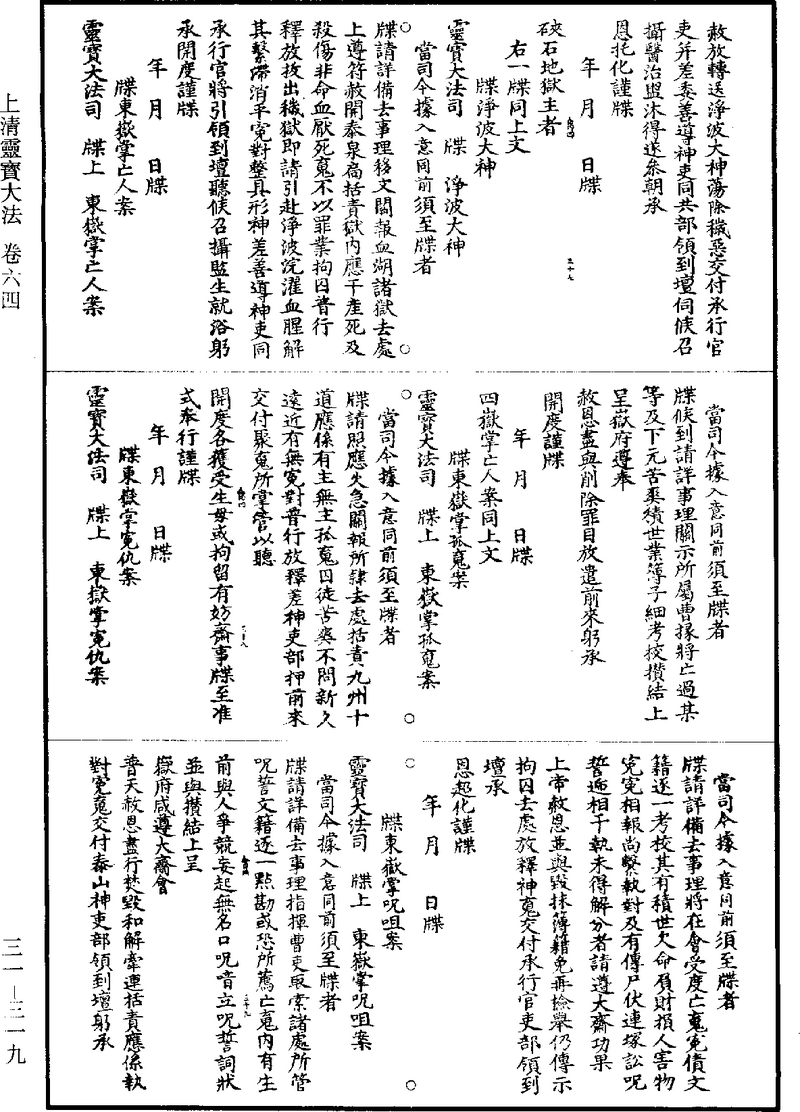 上清靈寶大法 卷六四
三一—三一九
赦放轉送淨波大神蕩除穢惡交付承行官
吏幷差委善導神吏同共部領到壇伺候召
攝醫治盥沐得遂參朝承
恩托化謹牒
年 月 日牒
硤石地獄主者
右一牒同上文
牒淨波大神
靈寶大法司 牒 淨波大神
當司今據入意同前須至牒者
牒請詳備去事理移文關報血湖諸獄去處
上遵符赦開泰泉扄括責獄内應干產死及
殺傷非命血厭死䰟不以罪業拘囚普行
釋放拔出穢獄即請引赴淨波浣濯血腥解
其繫滯消平寃對整具形神差善導神吏同
承行官將引領到壇聽候召攝監生就浴躬
承開度謹牒
年 月 日牒
牒東嶽掌亡人案
靈寶大法司 牒上 東嶽掌亡人案
當司今據入意同前須至牒者
牒候到請詳事理關示所屬曹掾將亡過某
等及下元苦爽積世業簿子細考校攅結上
呈嶽府遵奉
赦恩盡與削除罪目放遣前來躬承
開度謹牒
年 月 日牒
四嶽掌亡人案同上文
牒東嶽掌孤䰟案
靈寶大法司 牒上 東嶽掌孤䰟案
當司今據入意同前須至牒者
牒請照應火急關報所隸去處括責九州十
道應係有主無主孤䰟囚徒苦爽不問新久
遠近有無寃對普行放釋差神吏部押前來
交付聚䰟所掌管以聽
開度各獲受生毋或拘留有妨齋事牒至准
式奉行謹牒
年 月 日牒
牒東嶽掌寃仇案
靈寶大法司 牒上 東嶽掌寃仇案
當司今據入意同前須至牒者
牒請詳備去事理將在會受度亡䰟寃債文
籍逐一考校其有積世欠命負財損人害物
寃寃相報尚繫執對及有傳尸伏連塚訟呪
誓逓相干執未得解分者請遵大齋功果
上帝赦恩並與毀抹簿籍免再撿舉仍傳示
拘囚去處放釋神䰟交付承行官吏部領到
壇承
恩超化謹牒
年 月 日牒
牒東嶽掌呪咀案
靈寶大法司 牒上 東嶽掌呪咀案
當司今據入意同前須至牒者
牒請詳備去事理指揮曹吏取索諸處所管
呪誓文籍逐一點勘或恐所薦亡䰟内有生
前與人爭競妄起無名口呪音立呪誓詞狀
並與攅結上呈
嶽府咸遵大齋會
普天赦恩盡行焚毀和解牽連括責應係執
對寃䰟交付泰山神吏部領到壇躬承